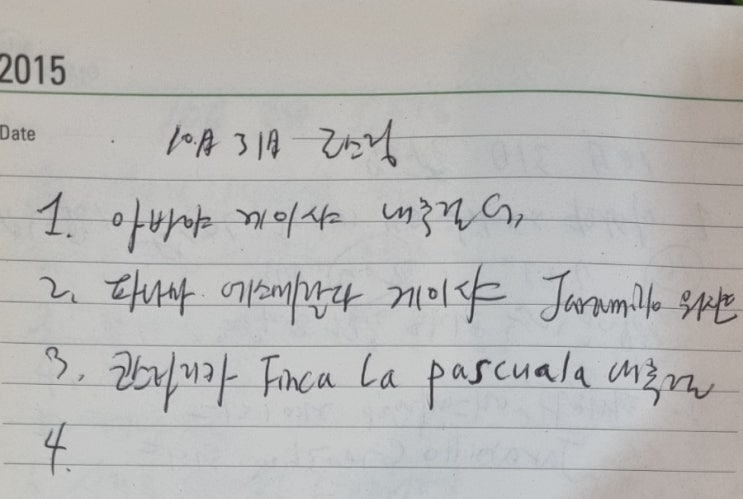 2015
Date
10月 31日 로스팅
1. 아바야 게이샤 내추럴 G1
2. 파나마 에스메랄다 게이샤 Jaramillo 워시드
3. 코스타리카 Finca La pascuala 내추럴
4.